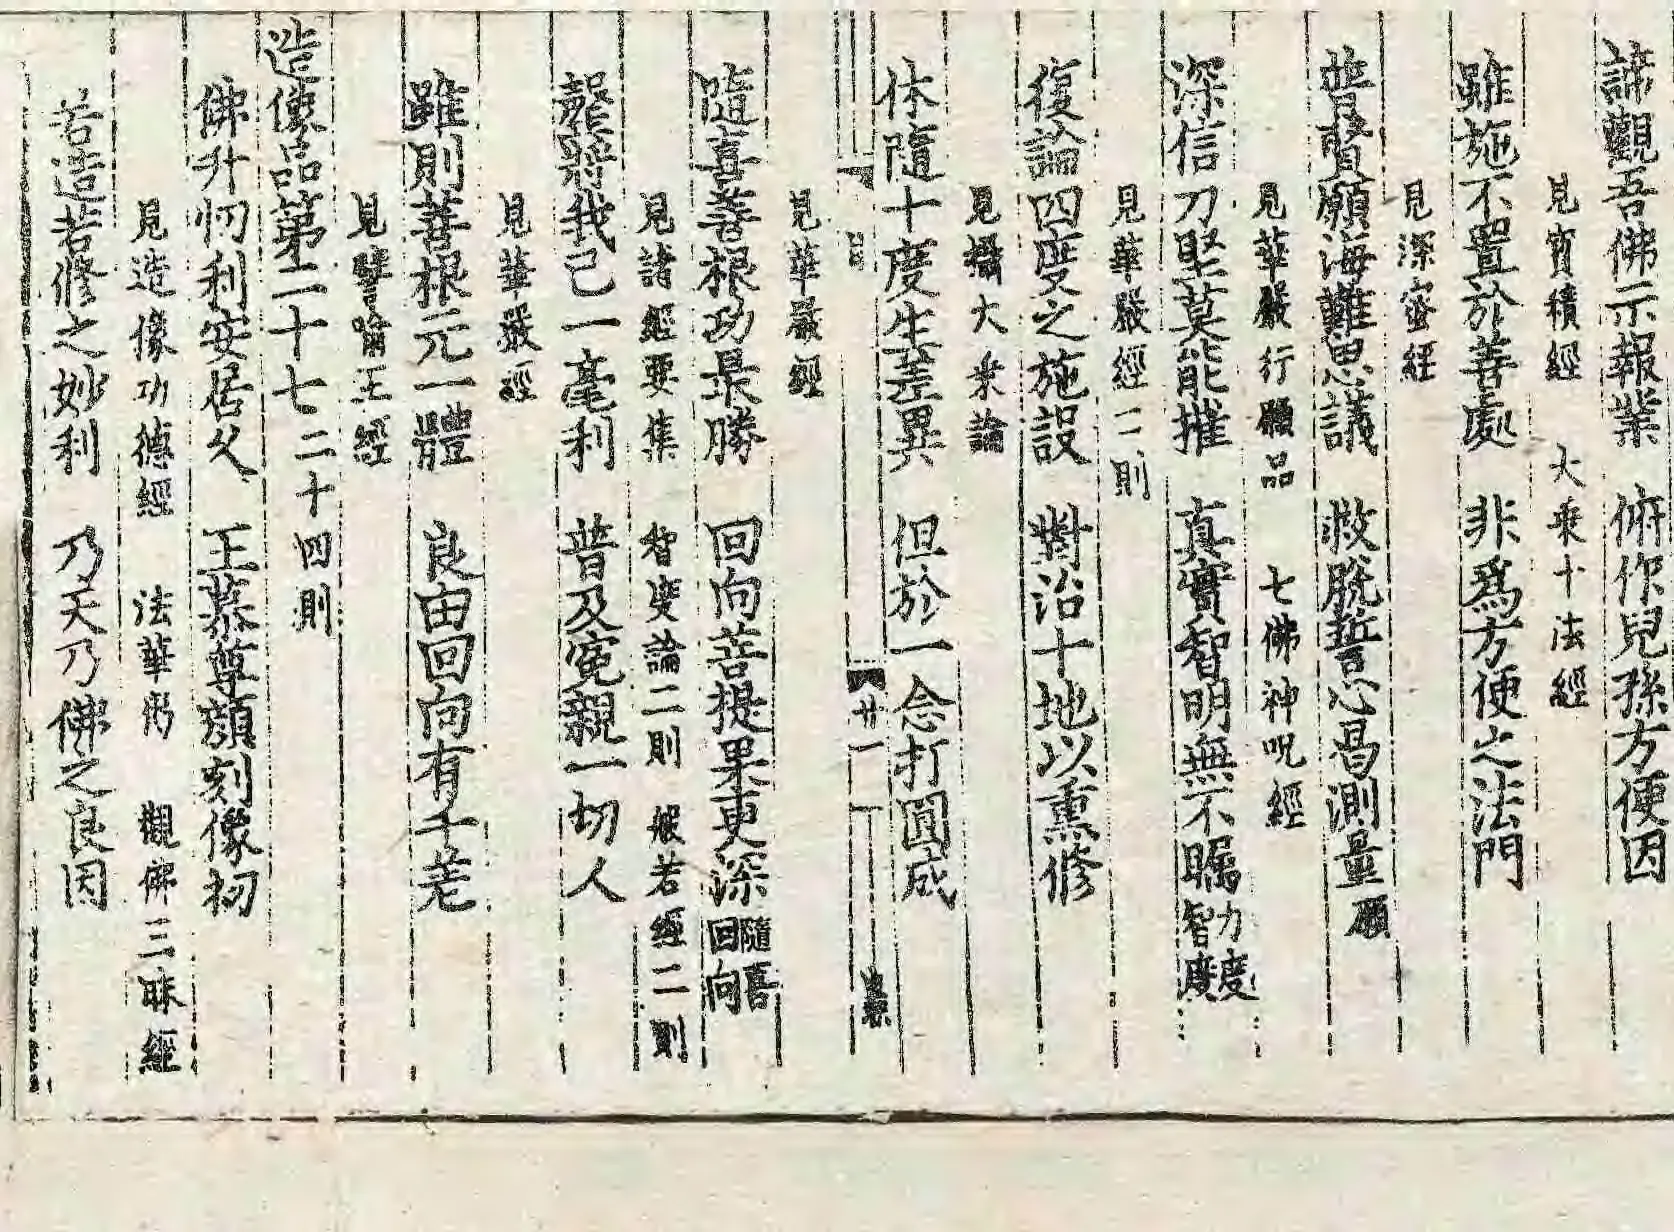 諦觀吾佛示報業　俯作兒孫方便因
見寶積經　大乘十法經
雖施不置於善處　非爲方便之法門
見深密經
普賢願海難思議　救脫誓心曷測量願
見華嚴行願品　七佛神呪經
深信刀堅莫能摧　真實智明無不矚力度智度
見華嚴經二則
復論四度之施設　對治十地以熏修
見攝大乘論
休隨十度生差異　但於一念打圓成
目　廿一
見華嚴經
隨喜善根功最勝　回向菩提果更深隨喜回向
見諸經要集　智度論二則　般若經二則
罄將我己一毫利　普及寃親一切人
見華嚴經
雖則善根元一體　良由回向有千差
見譬喻王經
造像品第二十七二十四則
佛升忉利安居久　王慕尊顔刻像初
見造像功德經　法華 觀佛三昧經
若造若修之妙利　乃天乃佛之良因